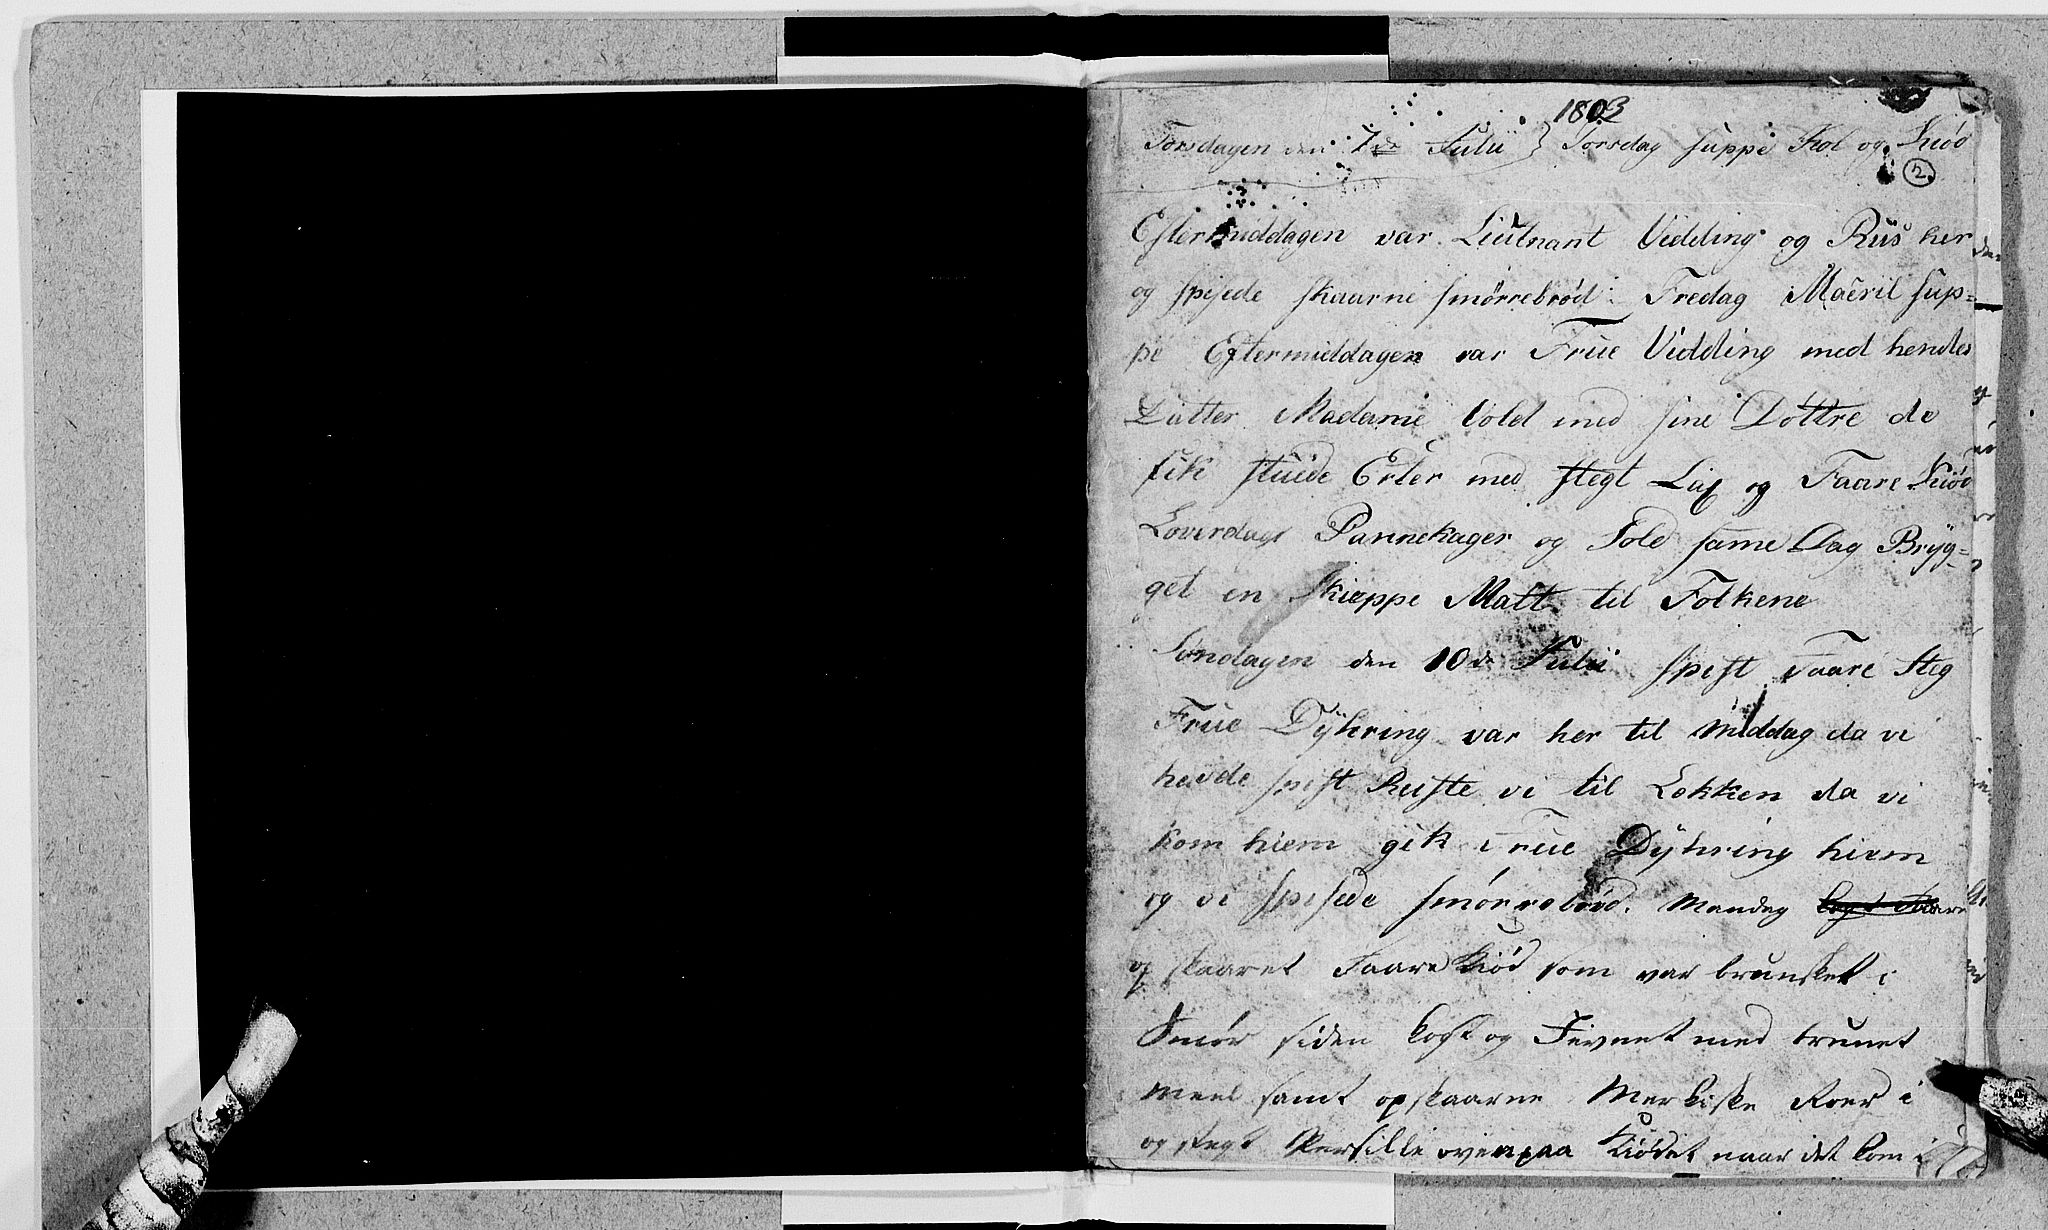 1803
Torsdagen den 7de Julii } Torsdag suppe Kol og Kiød
2.
Eftermiddagen var Liutnant Vidding og Rüs her
og spisede skaarne smørrebrød: Fredag Macril sup=
pe Eftermiddagen var Frue Vidding med hendes
Datter Madame Vold med sine Døttre de
fik stuede Erter med stegt Lax og Faare Kiød
Loverdags Pannekager og Sold same Dag Bryg=
get en Skieppe Malt til Folkene
Søndagen den 10de Julii spist Faare Steg
Frue Dÿhring var her til Middag da vi
havde spist Reiste vi til Lokken da vi
kom hiem gik Frue Dÿhring hiem
og vi spisede smørrebrød. Mandag
og skaaret Faare Kiød som var brunket i
Smør siden kogt og Jevnet med brunet
meel samt opskaarne Merkiske Roer i
og stegt Persille ovenpaa Kiødet naar det kom i